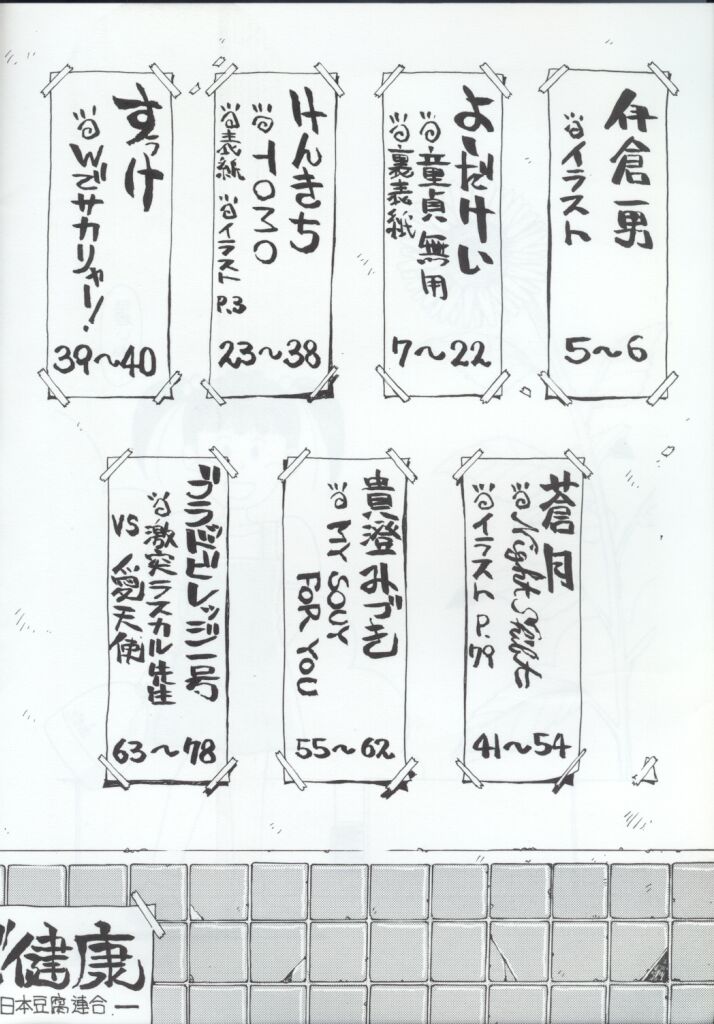 伊倉一男
イラスト
5〜6
よーだけい
童貞無用
裏表紙
7〜22
けんきち
TOMO
表紙 イラスト P.3
23〜38
すっけ
Wでサカリャー!
39〜40
蒼月
Night Shift
イラスト P.79
41〜54
貴澄みづき
MY SOUY
FOR YOU
55〜62
ブラッドビレッジ一号
激突ラスカル先生
VS 愛天使
63〜78
健康
日本豆腐連合